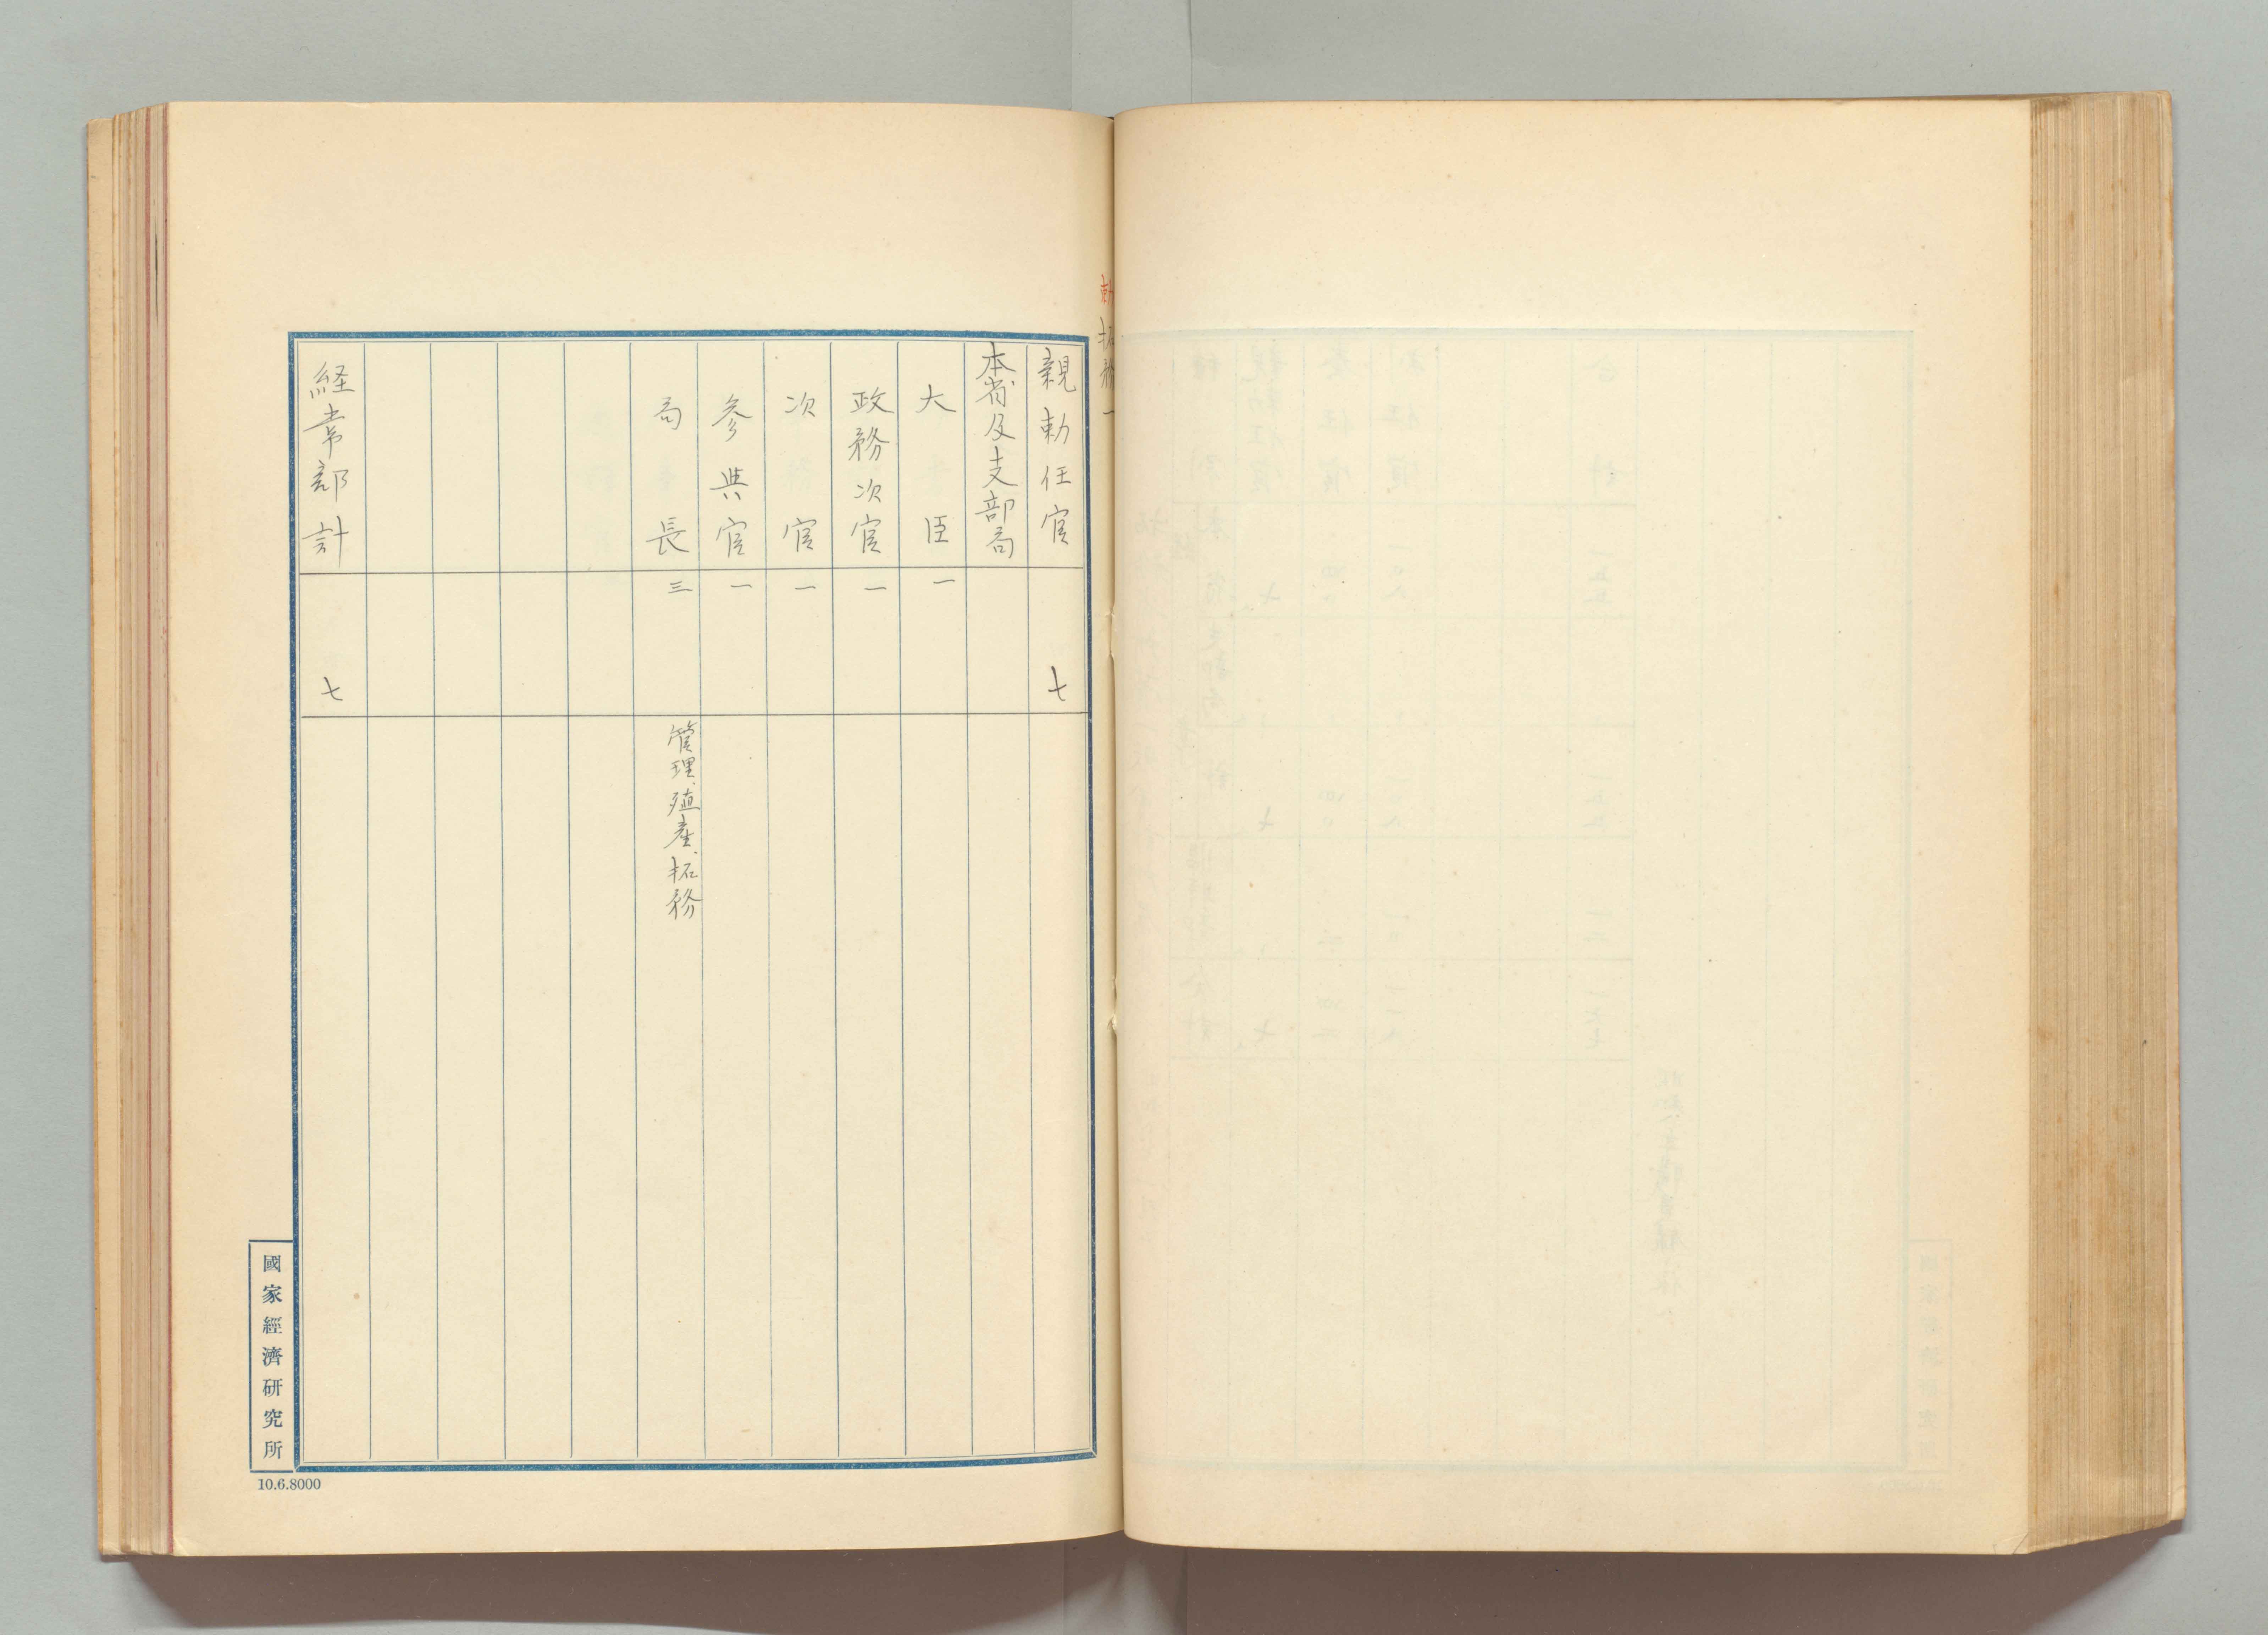 拓務一
親勅任官 七
本省及支部局
大臣 一
政務次官 一
次官 一
参与官 一
局長 三 管理、殖産、拓務
経常部計 七
國家經濟研究所
10.6.8000